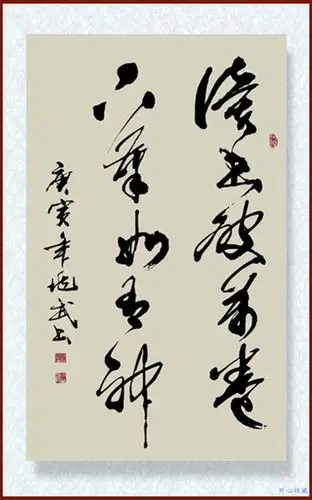 读书破万卷
下笔如有神
庚寅年 武书
开心收藏